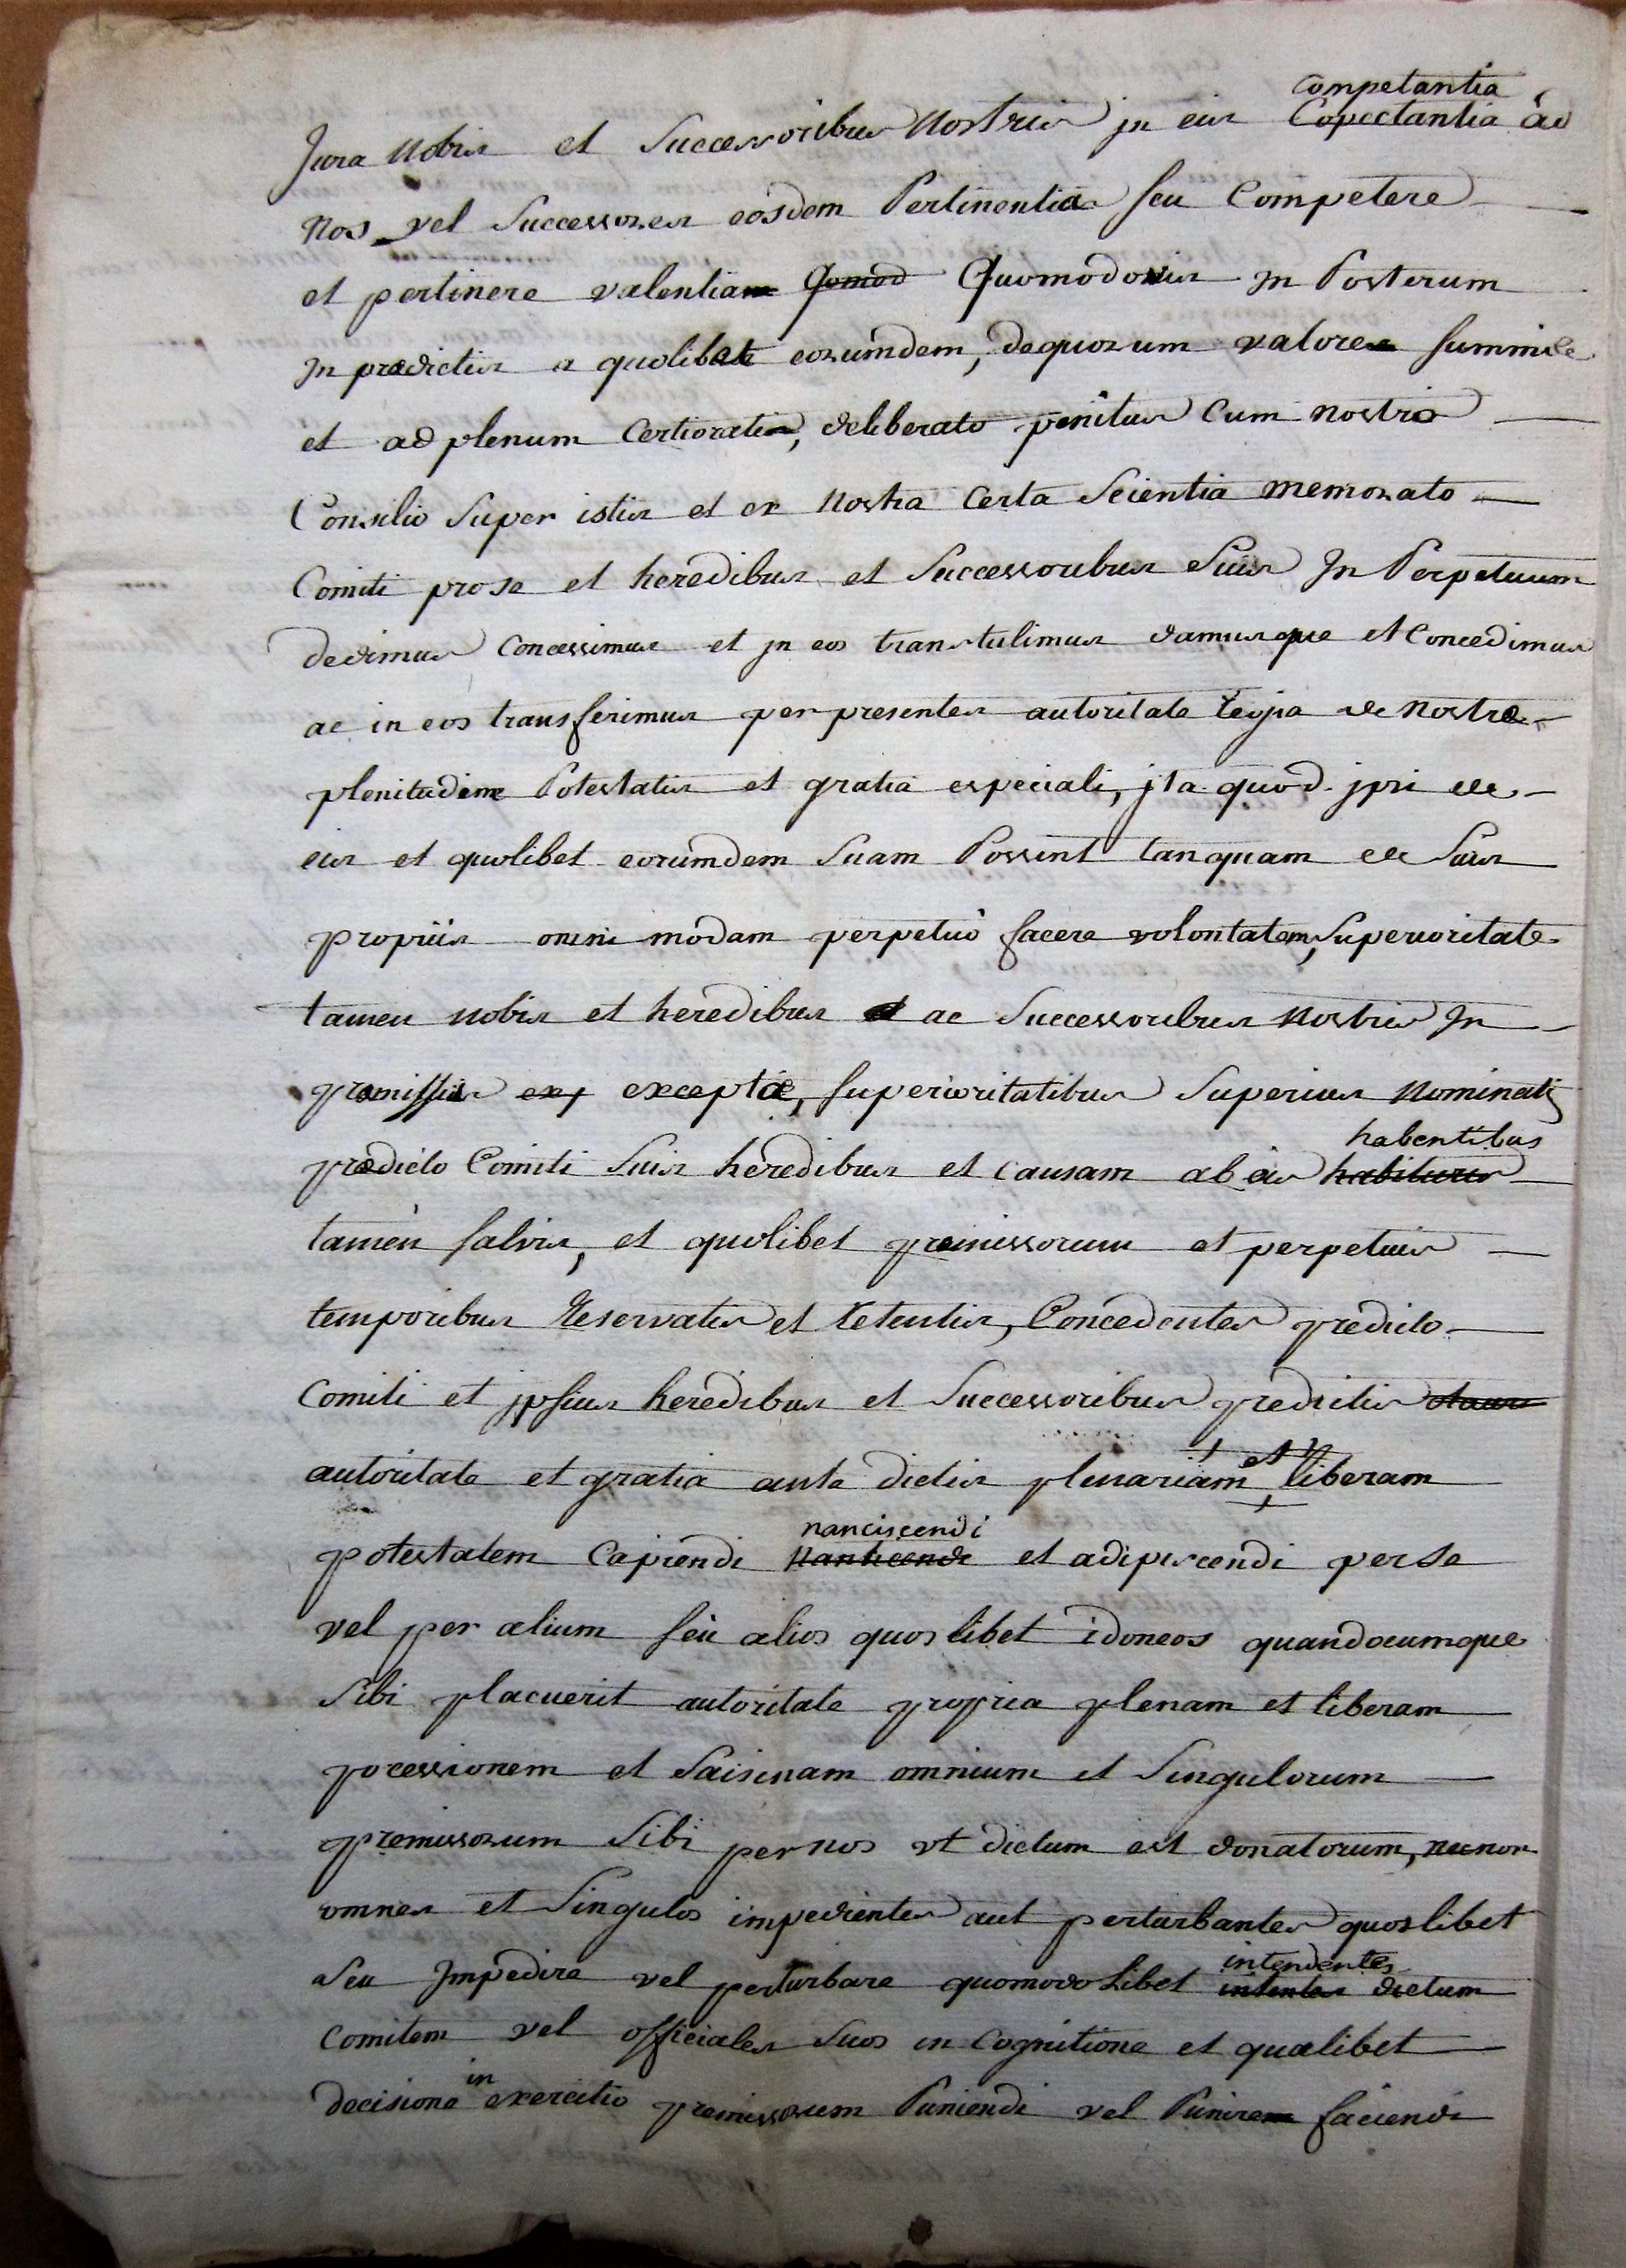 competantia
Jura nobis et Successoribus nostris jn eis Copectantia ad
nos vel Successores eosdem Pertinentia seu Competere
et pertinere valentia Qomod Quomodovis jn Posterum
jn prædictis a quolibet eorumdem, dequorum valore summiè
et ad plenum Certioratis, deliberato penitus Cum nostro
Consilio Super istis et ex nostra Certa Scientia memorato
Comiti pro se et heredibus et Successoribus Suis Jn Perpetuum
dedimus Concessimus et jn eos transtulimus damusque et Concedimus
ac in eos transferimus per presentes autoritate regia de nostræ
plenitudine Potestatis et gratia especiali, jta quod jpsi de
eis et quolibet eorumdem Suam Possint tanquam de Suis
propriis omni modam perpetuò facere volontatem, Superioritate
tamen nobis et heredibus et ac Successoribus nostris Jn
premissis ex exceptæ, Superioritatibus Superius nominatis
habentibus
prædicto Comiti Suis heredibus et causam ab eis habituris
tamen salvis, et quolibet premissorum et perpetuis
temporibus Reservatis et retentis, Concedentes predicto
Comiti et jpsius heredibus et Successoribus predictis
et
autoritate et gratia ante dictis plenariam, liberam
nanciscendi
potestatem Capiendi nanticendi et adipiscendi per se
vel per alium seu alios quos libet idoneos quandocumque
Sibi placuerit autoritate propria plenam et liberam
pocessionem et Saisinam omnium et Singulorum
premissorum Sibi per nos vt dictum est donatorum, necnon
omnes et Singulos impedientes aut perturbantes quoslibet
intendentes
Seu Jmpedire vel perturbare quomodo libet intentes dictum
Comitem vel officiales Suos in Cognitione et qualibet
in
decisione exercitio premissorum Puniendi vel Punire faciendi